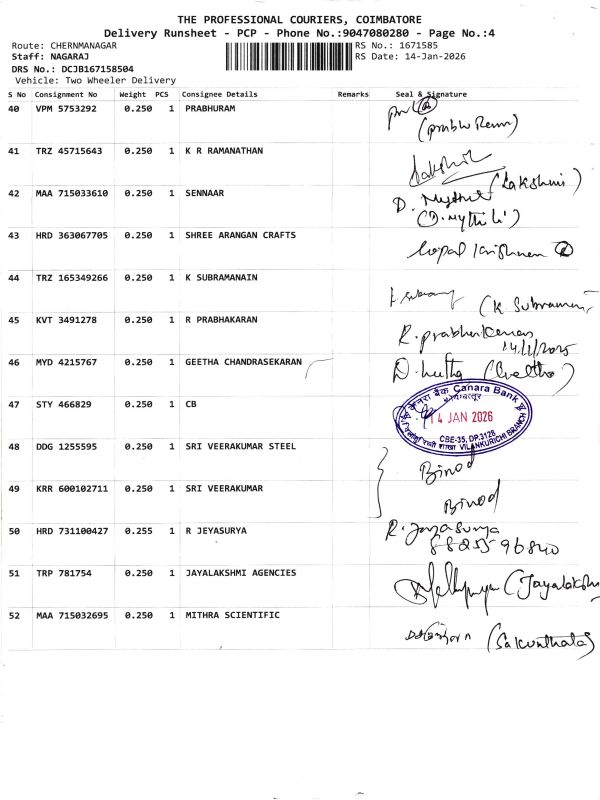 THE PROFESSIONAL COURIERS, COIMBATORE
Delivery Runsheet - PCP - Phone No.:9047080280 - Page No.:4
Route: CHERNMANAGAR RS No.: 1671585
Staff: NAGARAJ RS Date: 14-Jan-2026
DRS No.: DCJB167158504
Vehicle: Two Wheeler Delivery
S No Consignment No Weight PCS Consignee Details Remarks Seal & Signature
40 VPM 5753292 0.250 1 PRABHURAM
(Prabhu Ram)
41 TRZ 45715643 0.250 1 K R RAMANATHAN
Lakshmi
(Lakshmi)
42 MAA 715033610 0.250 1 SENNAAR
D. Mythili
(D. Mythili)
43 HRD 363067705 0.250 1 SHREE ARANGAN CRAFTS
Gopal Krishnan
44 TRZ 165349266 0.250 1 K SUBRAMANAIN
(K Subramani
45 KVT 3491278 0.250 1 R PRABHAKARAN
R. prabhakaran
14/1/2025
46 MYD 4215767 0.250 1 GEETHA CHANDRASEKARAN
(Geetha)
47 STY 466829 0.250 1 CB
केनरा बैंक Canara Bank
कोयम्बत्तूर
14 JAN 2026
CBE-35, DP.3128
शाखा VILANKURICHI BRANCH
48 DDG 1255595 0.250 1 SRI VEERAKUMAR STEEL
Binod
49 KRR 600102711 0.250 1 SRI VEERAKUMAR
Binod
50 HRD 731100427 0.255 1 R JEYASURYA
R. Jayasurya
88255 96840
51 TRP 781754 0.250 1 JAYALAKSHMI AGENCIES
(Jayalaksh
52 MAA 715032695 0.250 1 MITHRA SCIENTIFIC
(Sakunthala)